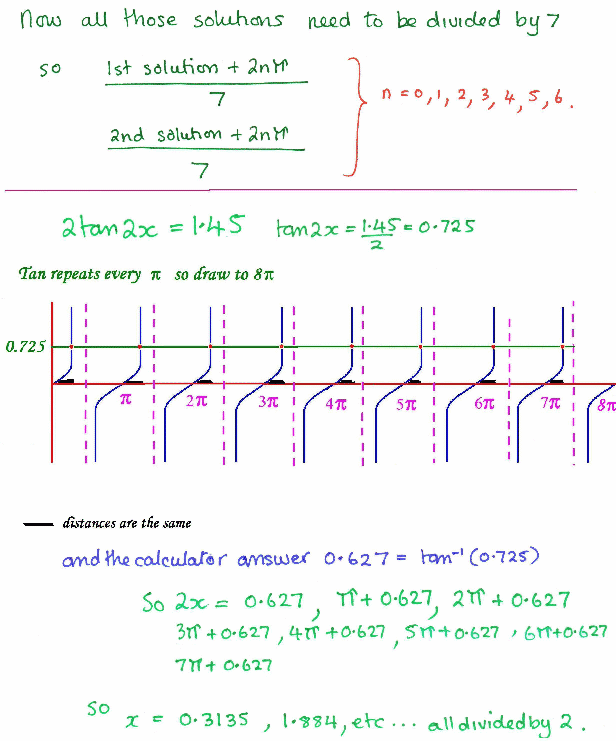 Now all those solutions need to be divided by 7
so 1st solution + 2nπ
7
2nd solution + 2nπ
7
n = 0, 1, 2, 3, 4, 5, 6.
2tan2x = 1·45 tan2x = 1·45 = 0·725
2
Tan repeats every π so draw to 8π
0.725
π 2π 3π 4π 5π 6π 7π 8π
distances are the same
and the calculator answer 0·627 = tan⁻¹(0·725)
So 2x = 0·627, π+ 0·627, 2π + 0·627
3π + 0·627, 4π + 0·627, 5π + 0·627, 6π+0·627
7π + 0·627
So
x = 0·3135, 1·884, etc ... all divided by 2.